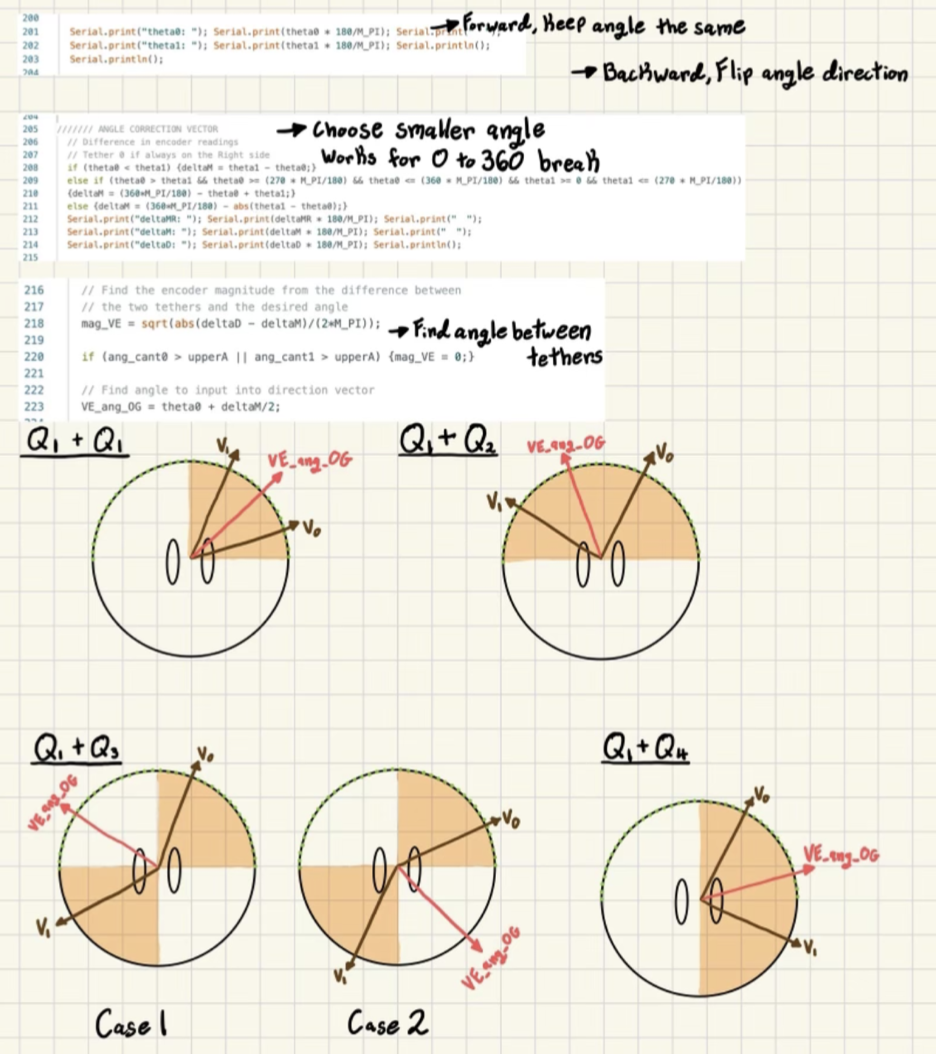 200
201 Serial.print("theta0: "); Serial.print(theta0 * 180/M_PI); Serial.print( → Forward, Keep angle the same
202 Serial.print("theta1: "); Serial.print(theta1 * 180/M_PI); Serial.println();
203 Serial.println();
204 → Backward, Flip angle direction
204
205 /////// ANGLE CORRECTION VECTOR → Choose smaller angle
206 // Difference in encoder readings
207 // Tether 0 if always on the Right side Works for 0 to 360 break
208 if (theta0 < theta1) {deltaM = theta1 - theta0;}
209 else if (theta0 > theta1 && theta0 >= (270 * M_PI/180) && theta0 <= (360 * M_PI/180) && theta1 >= 0 && theta1 <= (270 * M_PI/180))
210 {deltaM = (360*M_PI/180) - theta0 + theta1;}
211 else {deltaM = (360*M_PI/180) - abs(theta1 - theta0);}
212 Serial.print("deltaMR: "); Serial.print(deltaMR * 180/M_PI); Serial.print(" ");
213 Serial.print("deltaM: "); Serial.print(deltaM * 180/M_PI); Serial.print(" ");
214 Serial.print("deltaD: "); Serial.print(deltaD * 180/M_PI); Serial.println();
215
216 // Find the encoder magnitude from the difference between
217 // the two tethers and the desired angle
218 mag_VE = sqrt(abs(deltaD - deltaM)/(2*M_PI)); → Find angle between
219 tethers
220 if (ang_cant0 > upperA || ang_cant1 > upperA) {mag_VE = 0;}
221
222 // Find angle to input into direction vector
223 VE_ang_OG = theta0 + deltaM/2;
Q1 + Q1
V1
VE_ang_OG
V0
Q1 + Q2
VE_ang_OG
V0
V1
Q1 + Q3
V0
VE_ang_OG
V1
Case 1
V0
V1
VE_ang_OG
Case 2
Q1 + Q4
V0
VE_ang_OG
V1